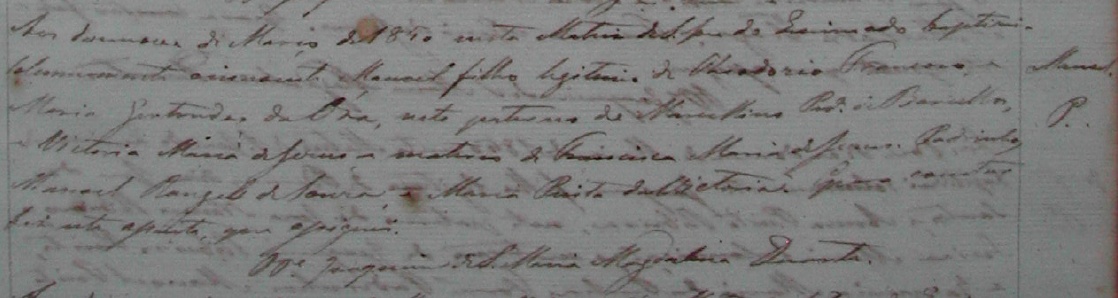 Aos de Março de 1840 nesta Matriz de do Queimado baptizei
solemnemente o innocente Manoel, filho legitimo de Theodorio Francisco, e
Maria Gertrudes da neto paterno de Marcellino de Barcellos,
e Victoria Maria de Jesus, e materno de Francisca Maria de Jesus. Padrinhos
Manoel Rangel de Souza, e Maria da Victoria. E para constar
fiz este assento, que assignei.
Joaquim de S. Maria Magdalena Duarte.
Manoel
P.